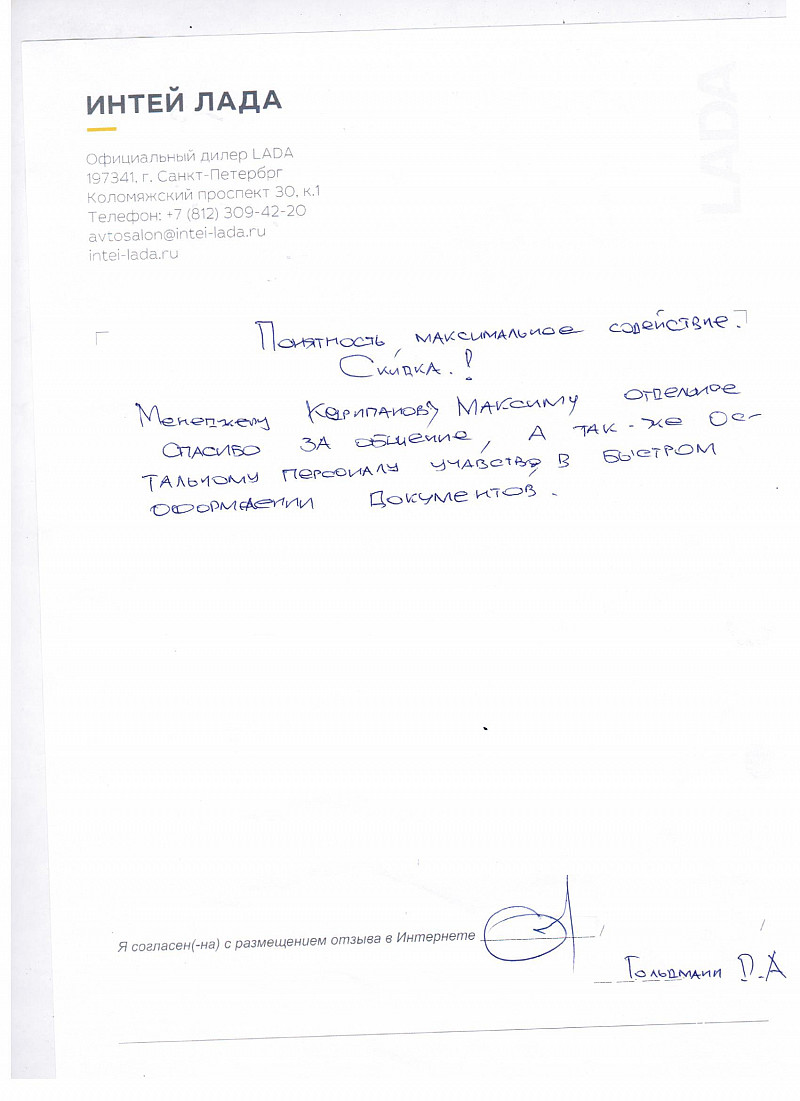 ИНТЕЙ ЛАДА
Официальный дилер LADA
197341, г. Санкт-Петербрг
Коломяжский проспект 30, к.1
Телефон: +7 (812) 309-42-20
avtosalon@intei-lada.ru
intei-lada.ru
LADA
Понятность, максимальное содействие.
Скидка.!
Менеджеру Максиму отдельное
спасибо за общение, а так-же ос-
тальному персоналу в быстром
оформлении документов.
Я согласен(-на) с размещением отзыва в Интернете
Гольдманн Д.А